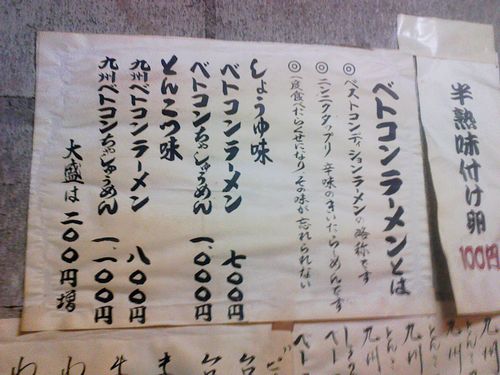 半熟味付け卵
100円
ベトコンラーメンとは
◎ベストコンディションラーメンの略称です
◎ニンニクタップリ 辛味のきいたらーめんです
◎一度食べだらくせになり、その味が忘れられない
しょうゆ味
ベトコンラーメン 七〇〇円
ベトコンちゃしゅうめん 一、〇〇〇円
とんこつ味
九州ベトコンラーメン 八〇〇円
九州ベトコンちゃしゅうめん 一、一〇〇円
大盛は二〇〇円増
九州
とん
九州
とん
九州
ベト